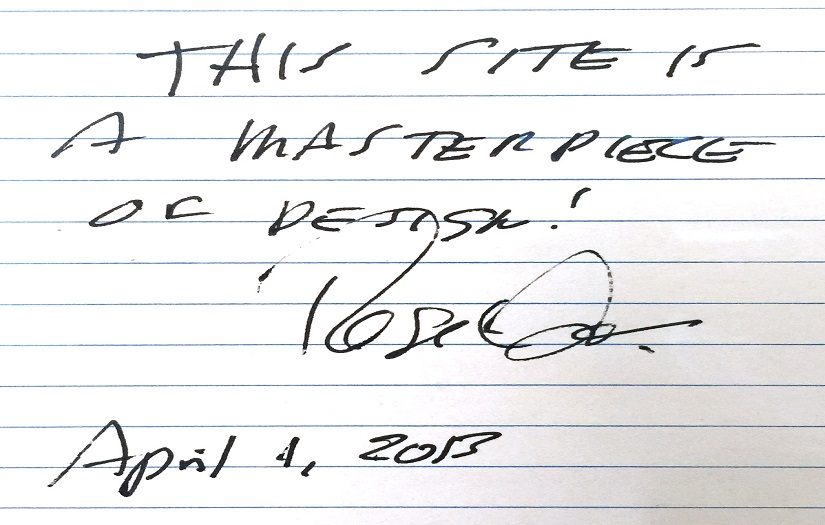 THIS SITE IS
A MASTERPIECE
OF DESIGN!
April 1, 2013